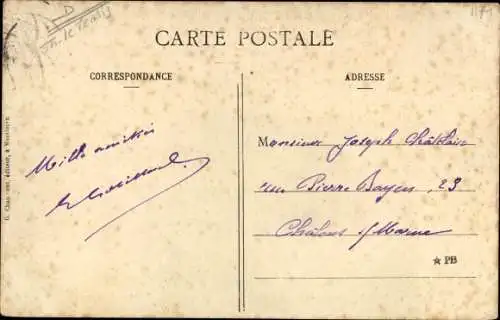 CARTE POSTALE
CORRESPONDANCE
ADRESSE
Mille amitiés
Monsieur Joseph Châtelain
rue Pierre Bayen, 23
Châlons s/Marne
★ PB